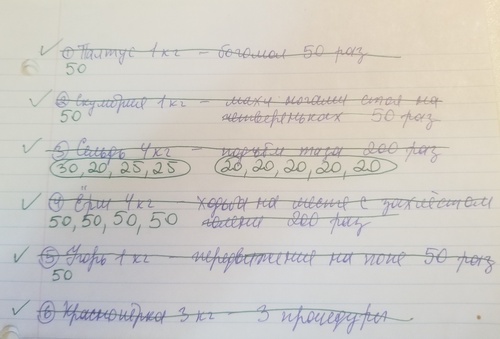 ✓ ① Палтус 1 кг – богомол 50 раз
50
✓ ② Скумбрия 1 кг – махи ногами стоя на
50 четвереньках 50 раз
✓ ③ Сельдь 4 кг – подъём таза 200 раз
30, 20, 25, 25 20, 20, 20, 20, 20
✓ ④ Ёрш 4 кг ходьба на месте с захлёстом
50, 50, 50, 50 голени 200 раз
✓ ⑤ Угорь 1 кг – передвижение на попе 50 раз
50
✓ ⑥ Краснопёрка 3 кг – 3 процедуры